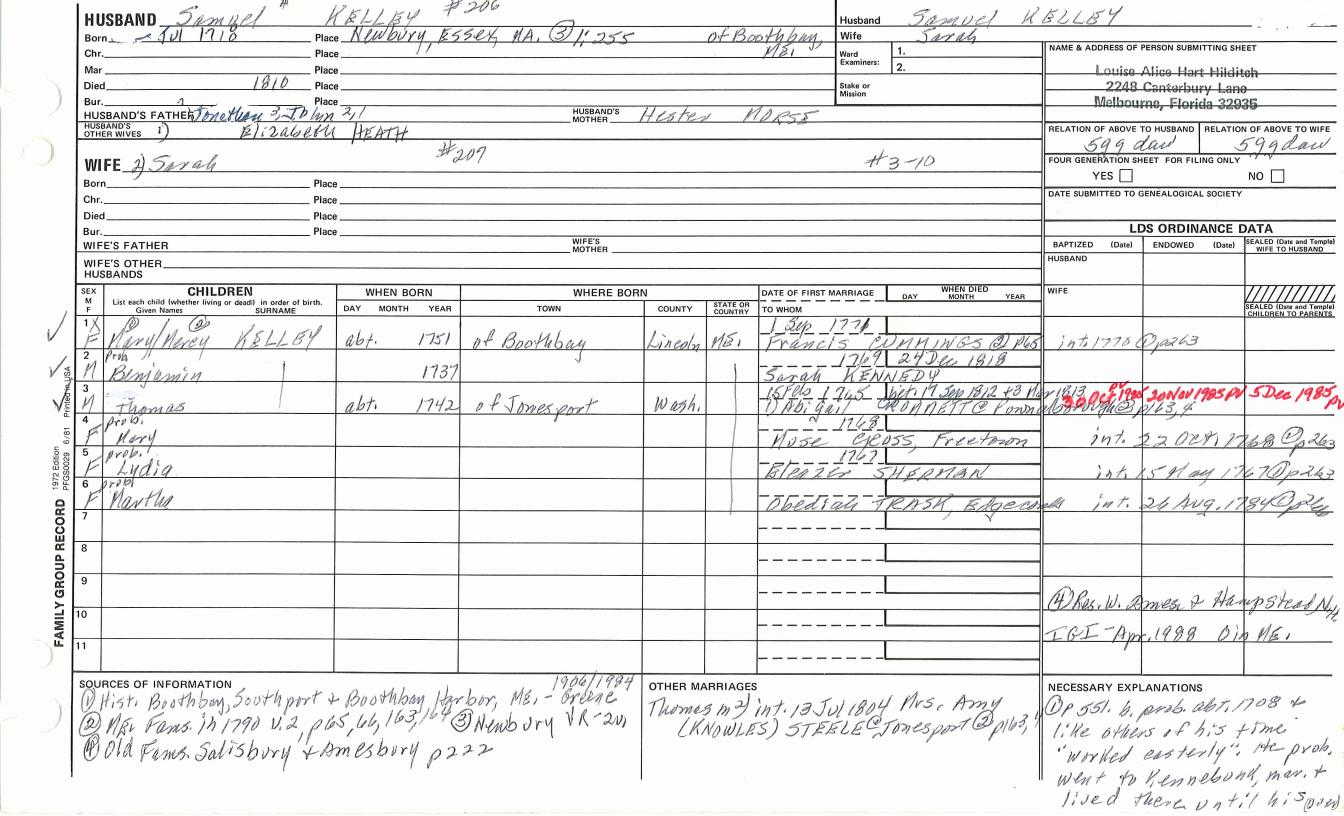 HUSBAND Samuel KELLEY #206
Born Jul 1710 Place Newbury, Essex, MA. ③ 1:255 of Boothbay, ME.
Chr. Place
Mar Place
Died 1810 Place
Bur. Place
HUSBAND'S FATHER Jonathan 3, John 2, 1 HUSBAND'S MOTHER Hester MORSE
HUSBAND'S OTHER WIVES 1) Elizabeth HEATH
WIFE 2) Sarah #207 #3-10
Born Place
Chr. Place
Died Place
Bur. Place
WIFE'S FATHER WIFE'S MOTHER
WIFE'S OTHER HUSBANDS
Husband Samuel KELLEY
Wife Sarah
Ward Examiners: 1.
2.
Stake or Mission
NAME & ADDRESS OF PERSON SUBMITTING SHEET
Louise Alice Hart Hilditch
2248 Canterbury Lane
Melbourne, Florida 32935
RELATION OF ABOVE TO HUSBAND RELATION OF ABOVE TO WIFE
5gg daw 5gg daw
FOUR GENERATION SHEET FOR FILING ONLY
YES NO
DATE SUBMITTED TO GENEALOGICAL SOCIETY
LDS ORDINANCE DATA
BAPTIZED (Date) ENDOWED (Date) SEALED (Date and Temple) WIFE TO HUSBAND
HUSBAND
WIFE
SEALED (Date and Temple) CHILDREN TO PARENTS
SEX M F CHILDREN WHEN BORN WHERE BORN DATE OF FIRST MARRIAGE WHEN DIED
List each child (whether living or dead) in order of birth.
Given Names SURNAME DAY MONTH YEAR TOWN COUNTY STATE OR COUNTRY TO WHOM DAY MONTH YEAR
1 X ① ② 1 Sep 1771
F Mary/Mercy KELLEY abt. 1751 of Boothbay Lincoln ME. Francis CUMMINGS ② p65 int. 1770 ① p263
2 Prob 1769 24 Dec 1818
M Benjamin 1737 Sarah KENNEDY
3 15 Feb 1765 bet. 17 Sep 1812 + 3 Mar 1813 30 Oct 1985 PV 20 Nov 1985 PV 5 Dec 1985 PV
M Thomas abt. 1742 of Jonesport Wash. 1) Abigail @ p163,4
4 prob. 1768
F Mary Mose GROSS, Freetown int. 22 Oct. 1768 ① p263
5 prob. 1767
F Lydia Eleazer SHERMAN int. 15 May 1767 ① p263
6 prob
F Martha Obediah TRASK, Edgecomb int. 26 Aug. 1784 ①
7
8
9
10
11
④ Res. W. Ames. & Hampstead N.H.
IGI - Apr. 1988 0 in ME.
1972 Edition 6/81 Printed in USA
PFGS0029
FAMILY GROUP RECORD
SOURCES OF INFORMATION 1906/1984
① Hist. Boothbay, Southport & Boothbay Harbor, ME. - Greene
② ME. Fams. in 1790 v.2, p65, 66, 163, 164 ③ Newbury VR - 2v.
④ Old Fams. Salisbury & Amesbury p222
OTHER MARRIAGES
Thomas m 2) int. 13 Jul 1804 Mrs. Amy
(KNOWLES) STEELE @ Jonesport ② p163,4
NECESSARY EXPLANATIONS
① p 551. b. prob. abt. 1708 &
like others of his time
"worked easterly". He prob.
went to Kennebunk, mar. &
lived there until his (over)